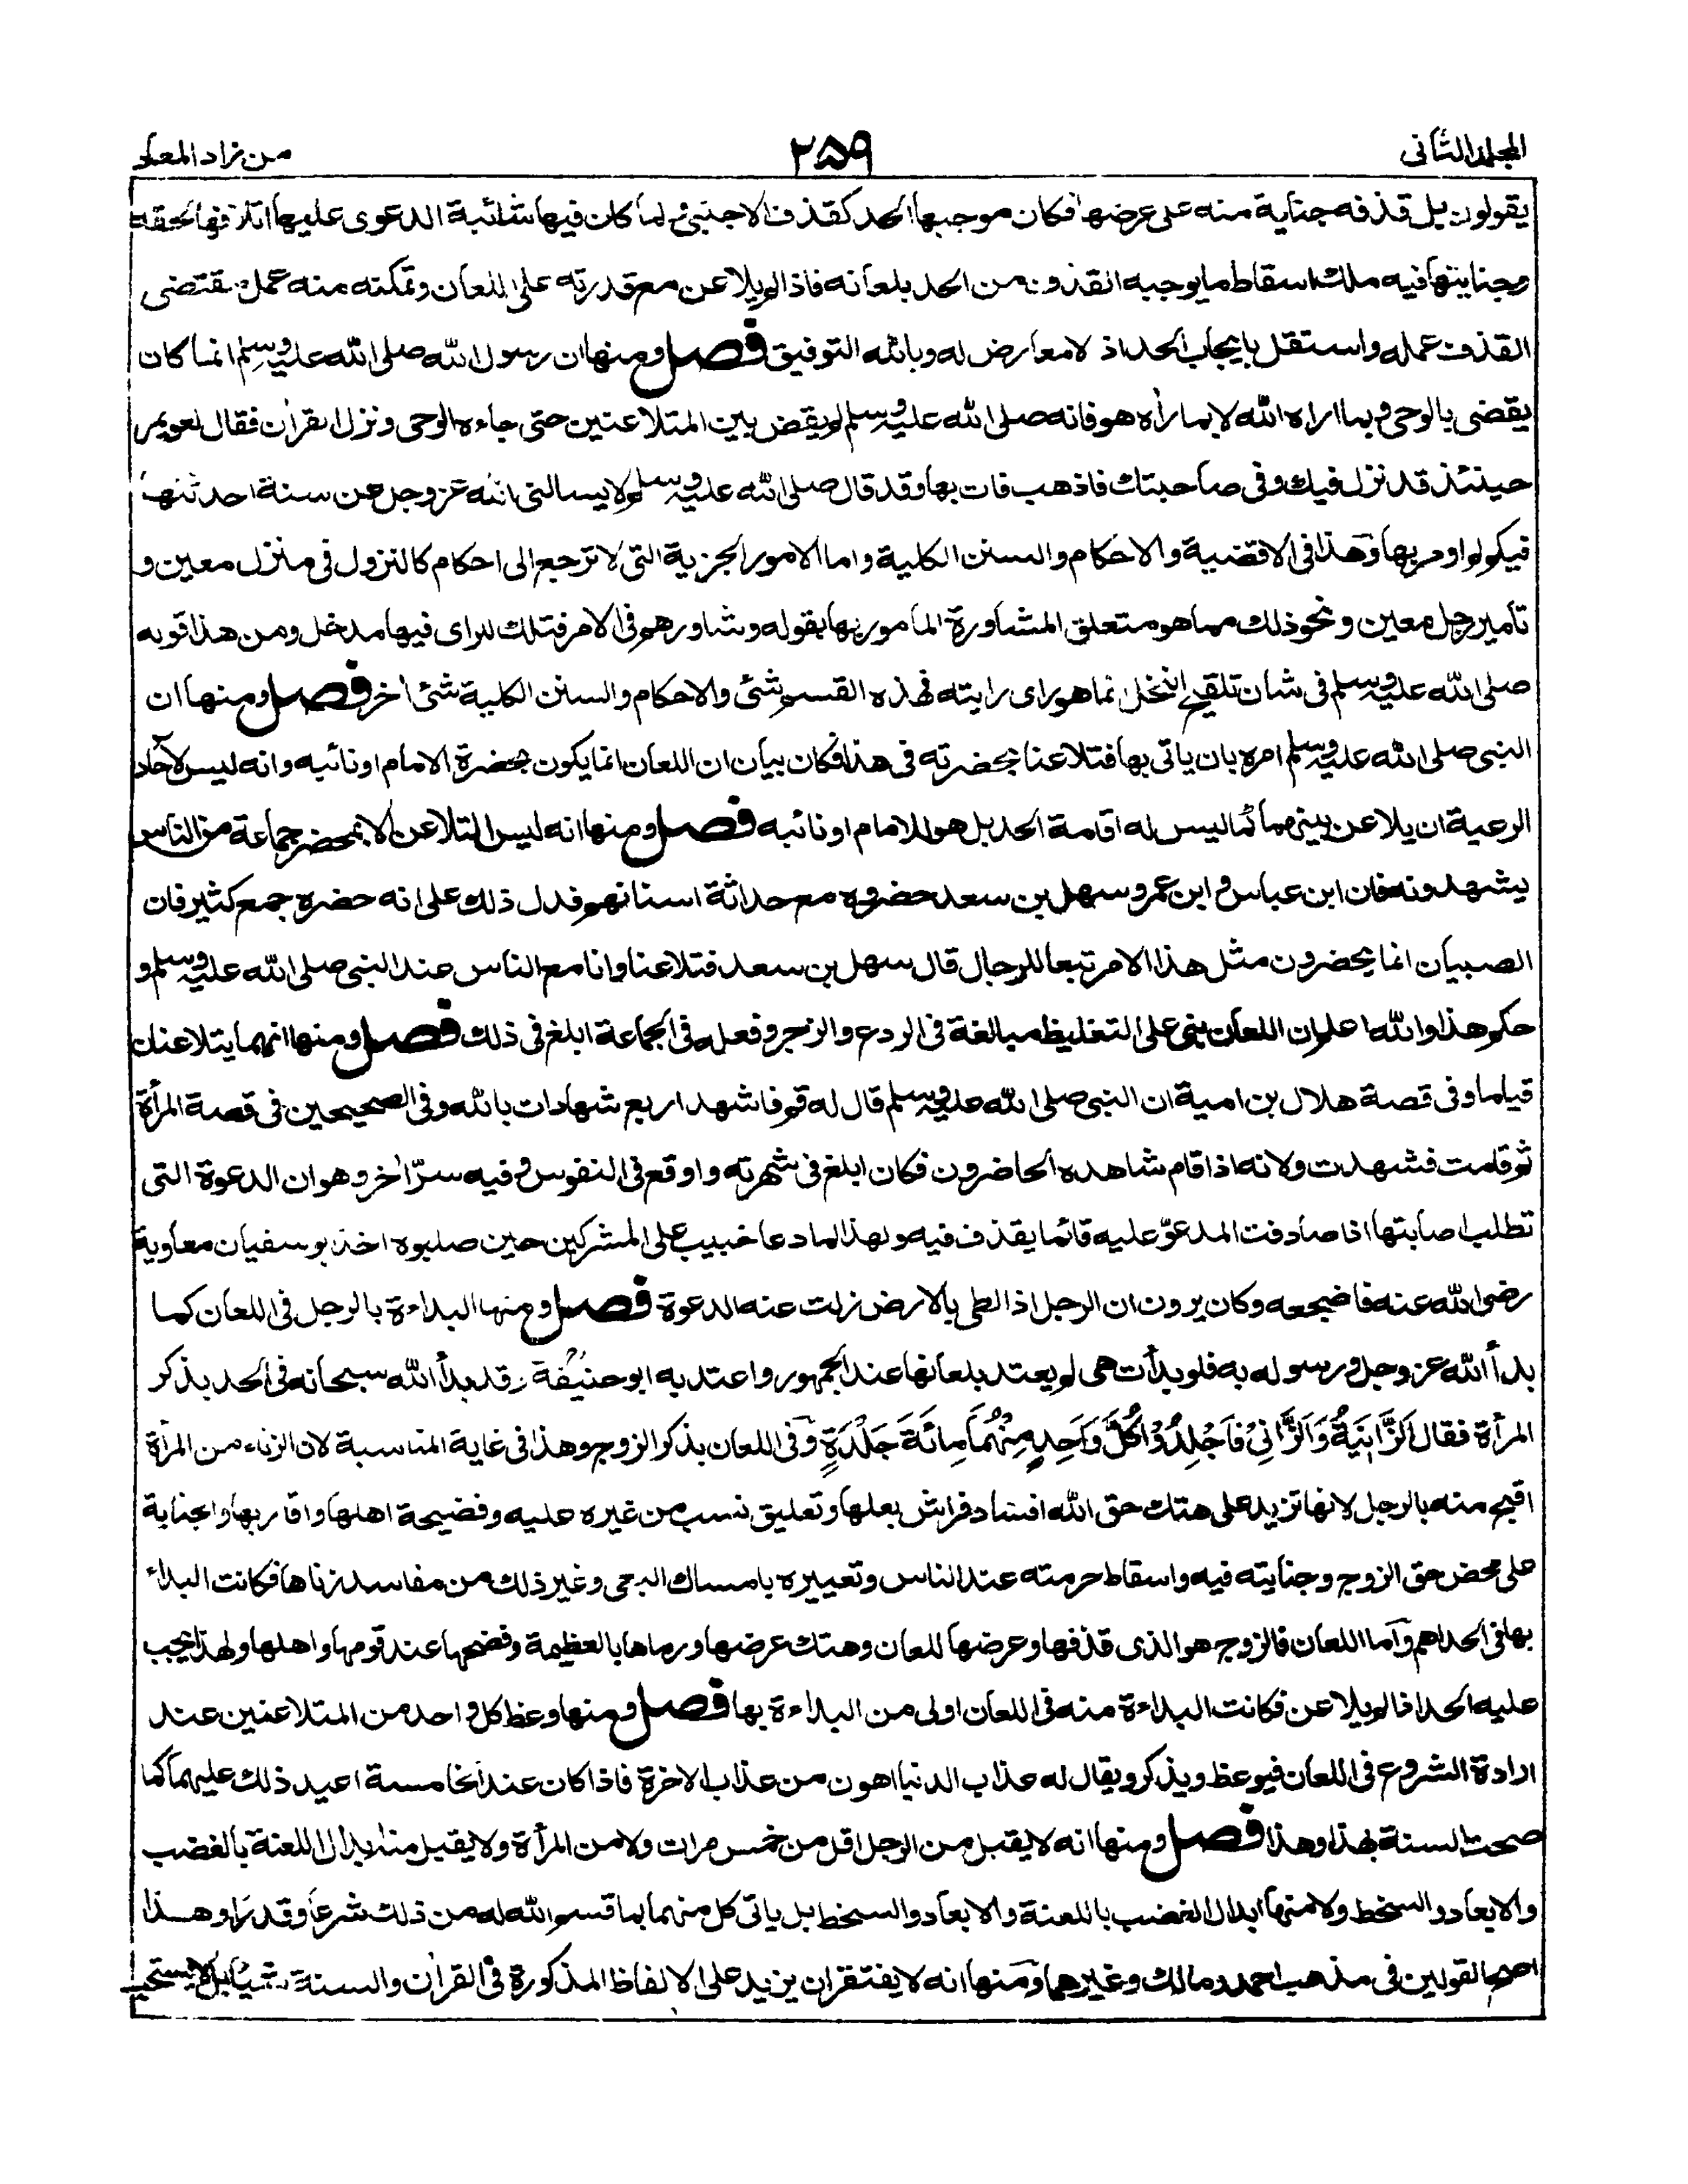 المجلد الثانى ٢٥٩ من زاد المعاد
يقولون بل قذفه جناية منه على عرضها فكان موجبها الحد كقذف الاجنبى ولما كان فيها شائبة الدعوى عليها اتلافها لحقه
وجنايتها فيه ملك اسقاط ما يوجبه القذف من الحد بلعانه فاذا لم يلاعن مع قدرته على اللعان وتمكنه منه عمل مقتضى
القذف عمله واستقل بايجاب الحد اذ لا معارض له وبالله التوفيق فصل ومنها ان رسول الله صلى الله عليه وسلم انما كان
يقضى بالوحى وبما اراه الله لا بما راٰه هو فانه صلى الله عليه وسلم لم يقض بين المتلاعنين حتى جاءه الوحى ونزل القراٰن فقال لعويمر
حينئذ قد نزل فيك وفى صاحبتك فاذهب فات بها وقد قال صلى الله عليه وسلم لا يسالنى الله عزوجل عن سنة احدثتها
فيكم لم اومر بها وهذا فى الاقضية والاحكام والسنن الكلية واما الامور الجزية التى لا ترجع الى احكام كالنزول فى منزل معين و
تامير رجل معين ونحو ذلك مما هو متعلق المشاورة المامور بها بقوله وشاورهم فى الامر فتلك للراى فيها مدخل ومن هذا قوله
صلى الله عليه وسلم فى شان تلقيح النخل انما هو راى رايته فهذه القسم شئ والاحكام والسنن الكلية شئ اٰخر فصل ومنها ان
النبى صلى الله عليه وسلم امره بان ياتى بها فتلاعنا بحضرته فى هذا فكان بيان ان اللعان انما يكون بحضرة الامام او نائبه وانه ليس لآحاد
الرعية ان يلاعن بينهما كما ليس له اقامة الحد بل هو للامام او نائبه فصل ومنها انه ليس التلاعن الا بمحضر جماعة من الناس
يشهدونه فان ابن عباس وابن عمر وسهل بن سعد حضروه مع حداثة اسنانهم فدل ذلك على انه حضره جمع كثير فان
الصبيان انما يحضرون مثل هذا الامر تبعا للرجال قال سهل بن سعد فتلاعنا وانا مع الناس عند النبى صلى الله عليه وسلم و
حكم هذا والله اعلم ان اللعان بنى على التغليظ مبالغة فى الردع والزجر وفعله فى الجماعة ابلغ فى ذلك فصل ومنها انهما يتلاعنان
قياما وفى قصة هلال بن امية ان النبى صلى الله عليه وسلم قال له قم فاشهد اربع شهادات بالله وفى الصحيحين فى قصة المرأة
ثم قامت فشهدت ولانه اذا قام شاهده الحاضرون فكان ابلغ فى شهرته واوقع فى النفوس وفيه سرّ اٰخر وهو ان الدعوة التى
تطلب اصابتها اذا صادفت المدعوّ عليه قائما يقذف فيه ولهذا لما دعا خبيب على المشركين حين صلبوه اخذ بو سفيان معاوية
رضى الله عنه فاضجعه وكان يرون ان الرجل اذا لطى بالارض زلت عنه الدعوة فصل ومنها البداءة بالرجل فى اللعان كما
بدأ الله عز وجل ورسوله به فلو بدأت هى لم يعتد بلعانها عند الجمهور واعتد به ابو حنيفة وقد بدأ الله سبحانه فى الحد بذكر
المرأة فقال اَلزَّانِيَةُ وَالزَّانِىْ فَاجْلِدُوْا كُلَّ وَاحِدٍ مِنْهُمَا مِائَةَ جَلْدَةٍ وفى اللعان بذكر الزوج وهذا فى غاية المناسبة لان الزناء من المرأة
اقبح منه بالرجل لانها تزيد على هتك حق الله افساد فراش بعلها وتعليق نسب من غيره عليه وفضيحة اهلها واقاربها والجناية
على محض حق الزوج وجنايته فيه واسقاط حرمته عند الناس وتعييره بامساك البغى وغير ذلك من مفاسد زناها فكانت البداء
بها فى الحد اهم وآما اللعان فالزوج هو الذى قذفها وعرضها للعان وهتك عرضها ورماها بالعظيمة وفضحها عند قومها واهلها ولهذا يجب
عليه الحد اذا لم يلاعن فكانت البداءة منه فى اللعان اولى من البداءة بها فصل ومنها وعظ كل واحد من المتلاعنين عند
ارادة الشروع فى اللعان فيوعظ ويذكر ويقال له عذاب الدنيا اهون من عذاب الاخرة فاذا كان عند الخامسة اعيد ذلك عليهما كما
صحت السنة بهذا وهذا فصل ومنها انه لا يقبل من الرجل اقل من خمس مرات ولا من المرأة ولا يقبل منه ابدال اللعنة بالغضب
والابعاد والسخط ولا منها ابدال الغضب باللعنة والابعاد والسخط بل ياتى كل منهما بما قسم الله له من ذلك شرعا وقدرا وهذا
اصح القولين فى مذهب احمد ومالك وغيرهما ومنها انه لا يفتقر ان يزيد على الالفاظ المذكورة فى القراٰن والسنة شيئا بل لا يستحب